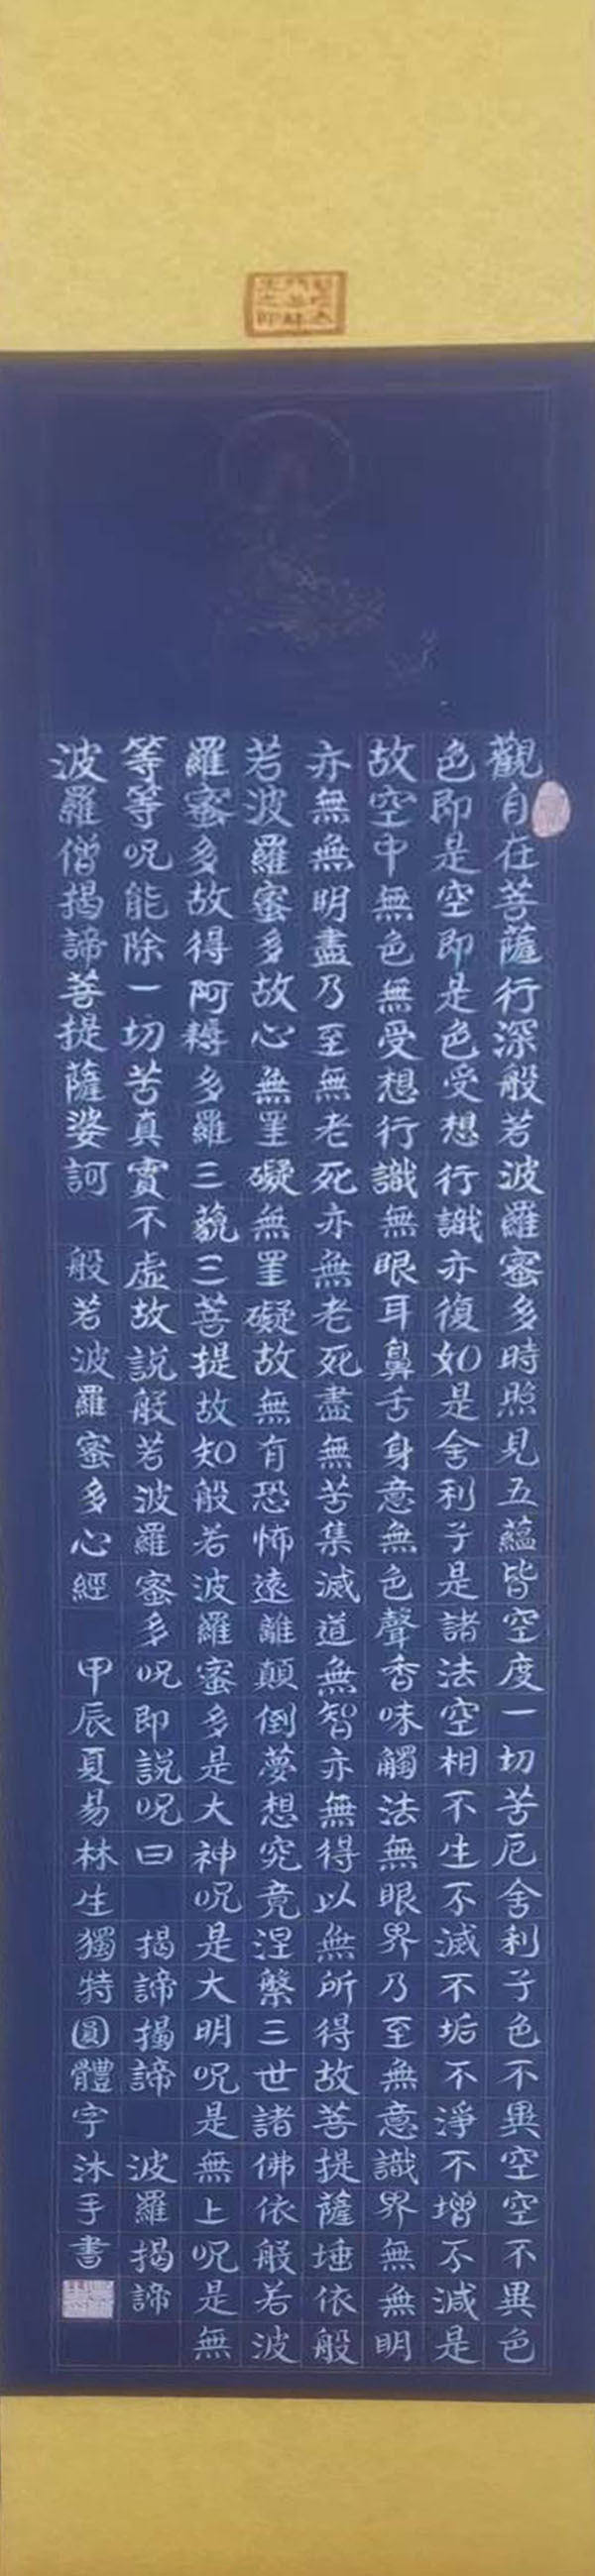 觀自在菩薩行深般若波羅蜜多時照見五蘊皆空度一切苦厄舍利子色不異空空不異色
色即是空空即是色受想行識亦復如是舍利子是諸法空相不生不滅不垢不淨不增不減是
故空中無色無受想行識無眼耳鼻舌身意無色聲香味觸法無眼界乃至無意識界無無明
亦無無明盡乃至無老死亦無老死盡無苦集滅道無智亦無得以無所得故菩提薩埵依般
若波羅蜜多故心無罣礙無罣礙故無有恐怖遠離顛倒夢想究竟涅槃三世諸佛依般若波
羅蜜多故得阿耨多羅三藐三菩提故知般若波羅蜜多是大神呪是大明呪是無上呪是無
等等呪能除一切苦真實不虛故説般若波羅蜜多呪即説呪曰 揭諦揭諦 波羅揭諦
波羅僧揭諦菩提薩婆訶 般若波羅蜜多心經 甲辰夏易林生獨特圓體字沐手書